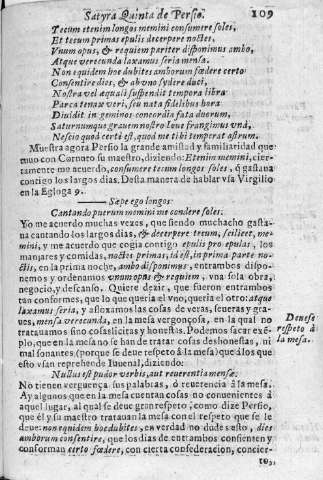 Satyra Quinta de Persio. 109
Tecum etenim longos memini consumere soles,
Et tecum primas epulis decerpere noctes,
Vnum opus, & requiem pariter disponimus ambo,
Atque verecunda laxamus seria mensa.
Non equidem hoc dubites amborum fœdere certo
Consentire dies, & ab vno sydere duci,
Nostra vel æquali suspendit tempora libra
Parca tenax veri, seu nata fidelibus hora
Diuidit in geminos concordia fata duorum,
Saturnumque grauem nostro Ioue frangimus vnà,
Nescio quod certè est, quod me tibi temperat astrum.
Muestra agora Persio la grande amistad y familiaridad que
tuuo con Cornuto su maestro, diziendo: Etenim memini, cier-
tamente me acuerdo, consumere tecum longos soles, q̃ gastaua
contigo los largos dias. Desta manera de hablar vsa Virgilio
en la Egloga 9.
Sæpe ego longos
Cantando puerum memini me condere soles.
Yo me acuerdo muchas vezes, que siendo muchacho gasta-
ua cantando los largos dias, & decerpere tecum, scilicet, me-
mini, y me acuerdo que cogia contigo epulis pro epulas, los
manjares y comidas, noctes primas, id est, in prima parte no-
ctis, en la prima noche, ambo disponimus, entrambos dispo-
nemos y ordenamos vnum opus & requiem, vna sola obra,
negocio, y descanso. Quiere dezir, que fueron entrambos
tan conformes, que lo que queria el vno, queria el otro: atque
laxamus seria, y afloxamos las cosas de veras, seueras y gra-
ues, mensa verecunda, en la mesa vergonçosa, en la qual no
tratauamos sino cosas licitas y honestas. Podemos sacar exẽ-
plo, que en la mesa no se han de tratar cosas deshonestas, ni
mal sonantes (porque se deue respeto à la mesa) que à los que
esto vsan reprehende Iuuenal, diziendo.
Deuese
respeto à
la mesa.
Nullus est pudor verbis, aut reuerentia mensæ.
No tienen verguença sus palabras, ò reuerencia à la mesa.
Ay algunos que en la mesa cuentan cosas no conuenientes à
aquel lugar, al qual se deue gran respeto; como dize Persio,
que èl y su maestro tratauan la mesa con el respeto que se le
deue: non equidem hoc dubites, en verdad no dudes esto, dies
amborum consentire, que los dias de entrambos consienten y
conforman certo fœdere, con cierta confederacion, concier-
tos,